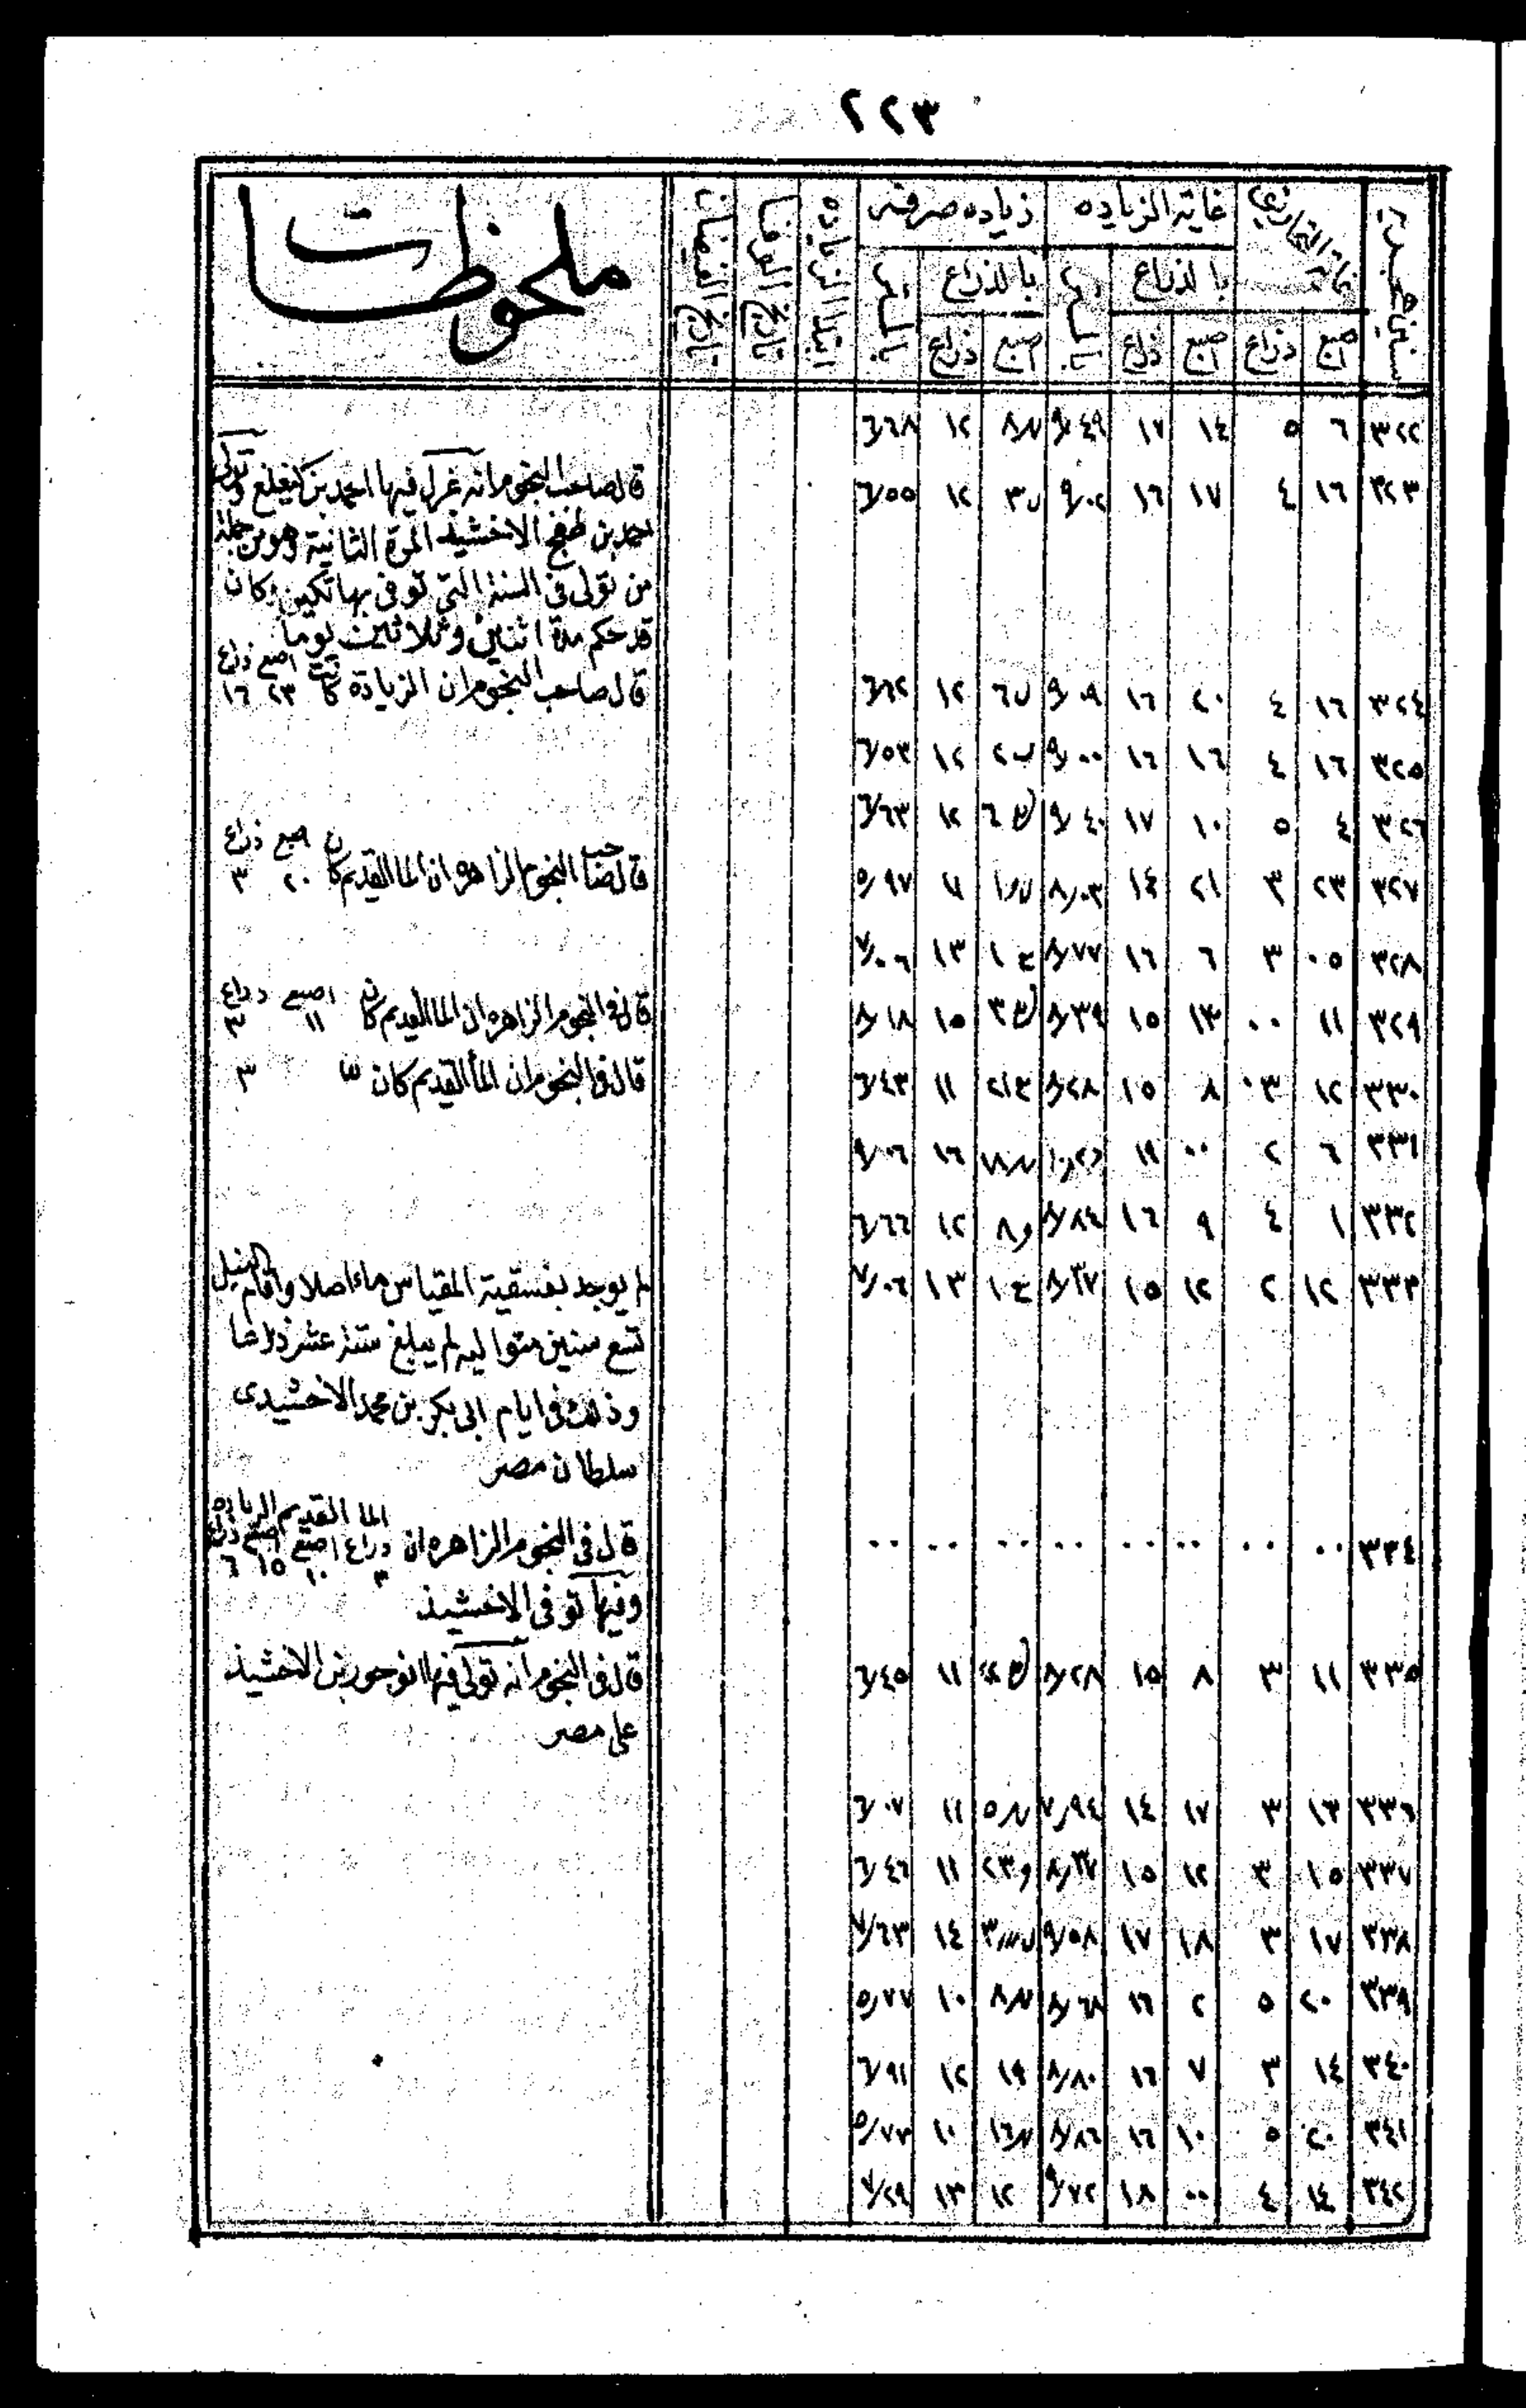 ٢٢٣
سنين هجريه | نهاية التحاريق | غاية الزياده | زياده صرفه | ابتدا الزياده | تاريخ الوفا | تاريخ الفيضان | ملحوظات
بالذراع | بالمتر | بالذراع | بالمتر
اصبع | ذراع | اصبع | ذراع | اصبع | ذراع
٣٢٢ | ٦ | ٥ | ١٤ | ١٧ | ٩٫٤٩ | ٨ | ١٢ | ٦٫٦٨
٣٢٣ | ١٦ | ٤ | ١٧ | ١٦ | ٩٫٠٢ | ٣ | ١٢ | ٦٫٥٥ | قال صاحب النجوم انه عزل فيها احمد بن كيغلغ وتولى
محمد بن طغج الاخشيد المرة الثانية وهو من جملة
من تولى فى السنة التى توفى بها تكين وكان
قد حكم مدة اثنين وثلاثين يوما
٣٢٤ | ١٦ | ٤ | ٢٠ | ١٦ | ٩٫٠٩ | ٦ | ١٢ | ٦٫٦٢ | قال صاحب النجوم ان الزيادة كانت اصبع ٢٣ ذراع ١٦
٣٢٥ | ١٦ | ٤ | ١٦ | ١٦ | ٩٫٠٠ | ٢ | ١٢ | ٦٫٥٣
٣٢٦ | ٤ | ٥ | ١٠ | ١٧ | ٩٫٤٠ | ٦ | ١٢ | ٦٫٦٣
٣٢٧ | ٢٣ | ٣ | ٢١ | ١٤ | ٨٫٠٣ | ١١ | ٥٫٩٧ | قال صاحب النجوم الزاهره ان الما القديم كان اصبع ٢٠ ذراع ٣
٣٢٨ | ٠٥ | ٣ | ٦ | ١٦ | ٨٫٧٧ | ١ | ١٣ | ٧٫٠٦
٣٢٩ | ١١ | ٠٠ | ١٣ | ١٥ | ٨٫٣٩ | ٣ | ١٥ | ٨٫١٨ | قال فى النجوم الزاهره ان الما القديم كان اصبع ١١ ذراع ٣
٣٣٠ | ١٢ | ٠٣ | ٨ | ١٥ | ٨٫٢٨ | ١١ | ٦٫٤٣ | قال فى النجوم ان الما القديم كان ٣
٣٣١ | ٦ | ٢ | ٠٠ | ١٩ | ١٦ | ٩٫٠٦
٣٣٢ | ١ | ٤ | ٩ | ١٦ | ٨٫٨٤ | ٨ | ١٢ | ٦٫٦٦
٣٣٣ | ١٢ | ٢ | ١٢ | ١٥ | ٨٫٣٧ | ١ | ١٣ | ٧٫٠٦ | لم يوجد بفسقية المقياس ماء اصلا واقام النيل
تسع سنين متواليه لم يبلغ ستة عشر ذراعا
وذلك فى ايام ابى بكر بن محمد الاخشيدى
سلطان مصر
٣٣٤ | ٠٠ | ٠٠ | ٠٠ | ٠٠ | ٠٠ | ٠٠ | ٠٠ | ٠٠ | قال فى النجوم الزاهره ان الما القديم ذراع ٣ اصبع ١٠ الزياده اصبع ١٥ ذراع ٦
وفيها توفى الاخشيد
٣٣٥ | ١١ | ٣ | ٨ | ١٥ | ٨٫٢٨ | ١١ | ٦٫٤٥ | قال فى النجوم انه تولى فيها انوجور بن الاخشيد
على مصر
٣٣٦ | ١٣ | ٣ | ١٧ | ١٤ | ٧٫٩٤ | ٥ | ١١ | ٦٫٠٧
٣٣٧ | ١٥ | ٣ | ١٢ | ١٥ | ٨٫٣٧ | ٢٣ | ١١ | ٦٫٤٦
٣٣٨ | ١٧ | ٣ | ١٨ | ١٧ | ٩٫٥٨ | ٣ | ١٤ | ٧٫٦٣
٣٣٩ | ٢٠ | ٥ | ٢ | ١٦ | ٨٫٦٨ | ٨ | ١٠ | ٥٫٧٧
٣٤٠ | ١٤ | ٣ | ٧ | ١٦ | ٨٫٨٠ | ١٩ | ١٢ | ٦٫٩١
٣٤١ | ٢٠ | ٥ | ١٠ | ١٦ | ٨٫٨٦ | ١٦ | ١٠ | ٥٫٧٣
٣٤٢ | ١٤ | ٤ | ٠٠ | ١٨ | ٩٫٧٢ | ١٢ | ١٣ | ٧٫٢٩